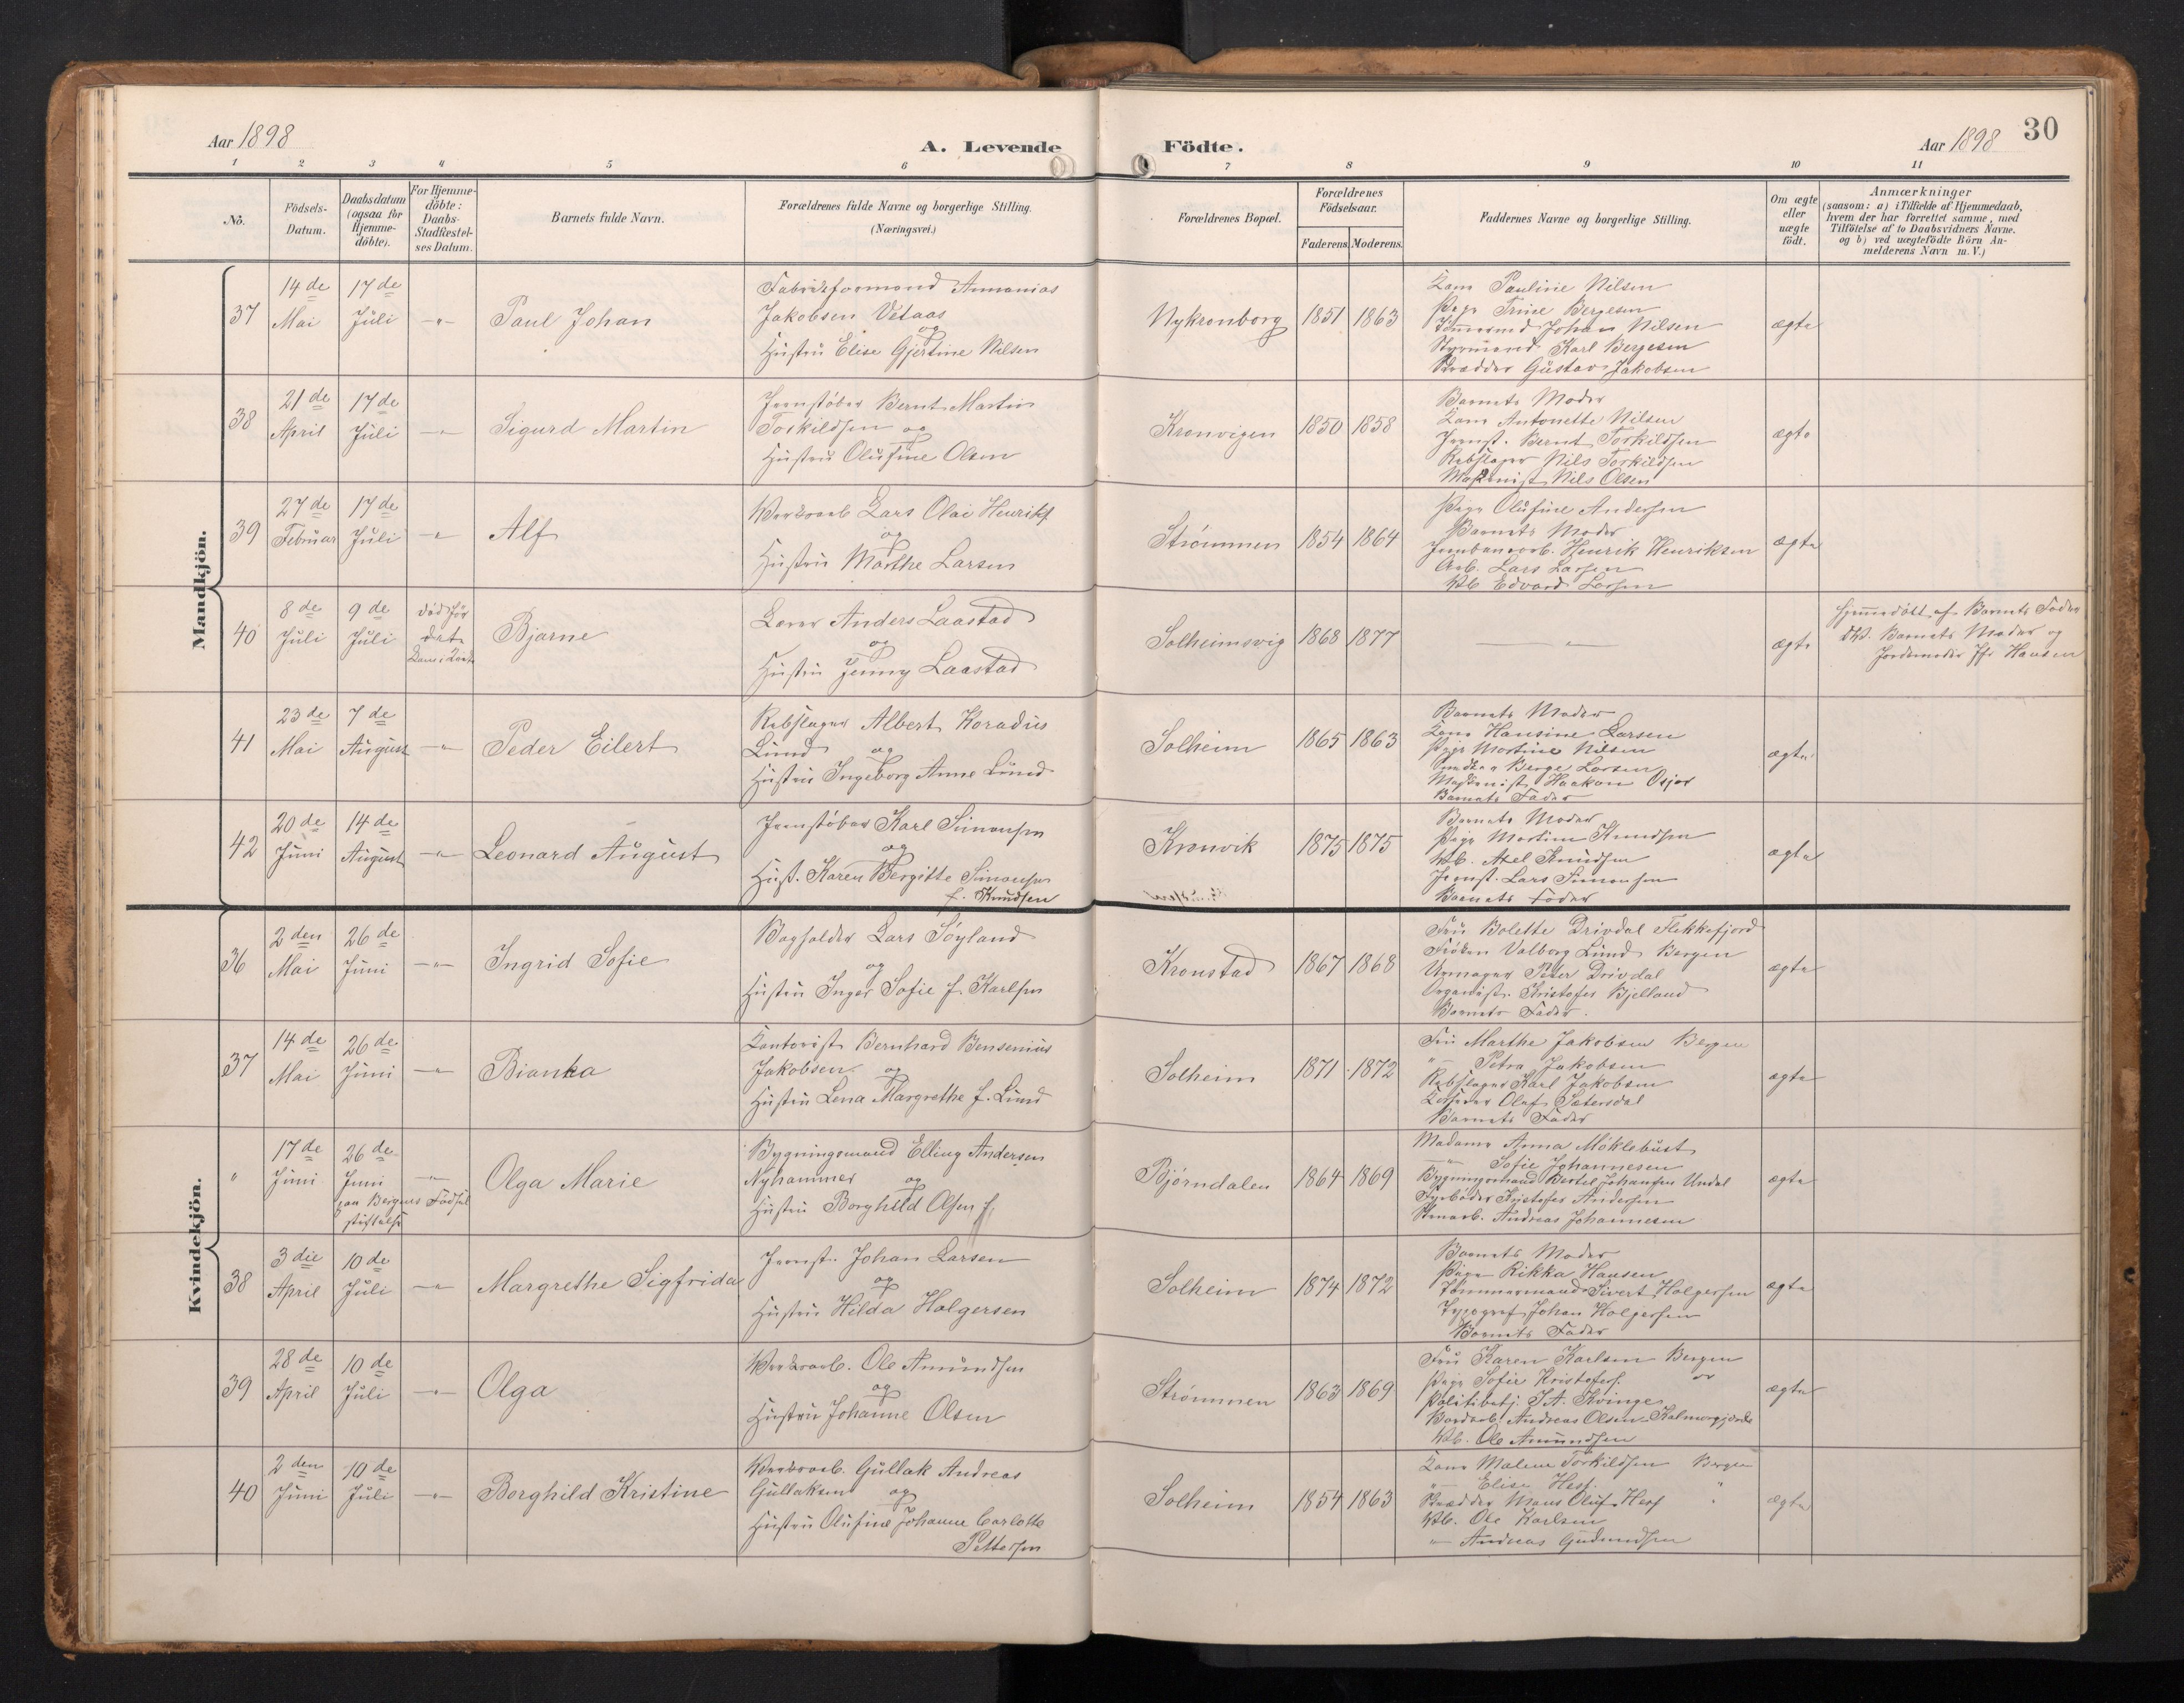 Aar 1898
A. Levende
Födte.
Aar 1898
30
1 2 3 4 5 6 7 8 9 10 11
No.
Födsels-Datum.
Daabsdatum (ogsaa for Hjemme-döbte).
For Hjemme-döbte: Daabs-Stadfæstel-ses Datum.
Barnets fulde Navn.
Forældrenes fulde Navne og borgerlige Stilling.
(Næringsvei.)
Forældrenes Bopæl.
Forældrenes Födselsaar.
Faderens. Moderens.
Faddernes Navne og borgerlige Stilling.
Om ægte eller uægte födt.
Anmærkninger
(saasom: a) i Tilfælde af Hjemmedaab,
hvem der har forrettet samme, med
Tilföielse af to Daabsvidners Navne.
og b) ved uægtefödte Börn An-
melderens Navn m. V.)
Mandkjön.
37 14de Mai 17de Juli -"- Paul Johan
Fabrikformand Ananias
Jakobsen Vetaas
og
Hustru Elise Gjertine Nilsen
Nykronborg 1851 1863
Kone Pauline Nilsen
Pige Trine Bergesen
Tömmermd Johan Nilsen
Styrmand Karl Bergesen
Skrædder Gustav Jakobsen
ægte
38 21de April 17de Juli -"- Sigurd Martin
Jernstöber Bernt Martin
Torkildsen og
Hustru Olufine Olsen
Kronvigen 1850 1858
Barnets Moder
Kone Antonette Nilsen
Jernst. Bernt Torkildsen
Rebslager Nils Torkildsen
Maskinist Nils Olsen
ægte
39 27de Februar 17de Juli -"- Alf
Værksarb Lars Olai Henriks.
og
Hustru Marthe Larsen
Strömmen 1854 1864
Pige Olufine Andersen
Barnets Moder
Jernbanearb. Henrik Henriksen
Arb. Lars Larsen
Vb Edvard Larsen
ægte
40 8de Juli 9de Juli död før
Bjarne
Lærer Anders Laastad
og
Hustru Jenny Laastad
Solheimsvig 1868 1877
-"-
ægte
Hjemmedöbt af Barnets Fader
Barnets Moder og
Jordemoder Hansen
41 23de Mai 7de August -"- Peder Eilert
Rebslager Albert Koradius
Lund og
Hustru Ingeborg Anne Lund
Solheim 1865 1863
Barnets Moder
Kone Hansine Larsen
Pige Martine Nilsen
Berge Larsen
Maskinist Haakon Osjor
Barnets Fader
ægte
42 20de Juni 14de August -"- Leonard August
Jernstöber Karl Simonsen
og
Hust. Karen Bergitte Simonsen
f. Knudsen
Kronvik 1875 1875
Barnets Moder
Pige Martine Knudsen
Vb. Axel Knudsen
Jernst. Lars Simonsen
Barnets Fader
ægte
Kvindekjön.
36 2den Mai 26de Juni -"- Ingrid Sofie
Bogholder Lars Söyland
og
Hustru Inger Sofie f. Karlsen
Kronstad 1867 1868
Fru Bolette Drivdal Flekkefjord
Fröken Valborg Lund Bergen
Urmager Peter Drivdal
Organist Kristofer Bjelland
Barnets Fader.
ægte
37 14de Mai 26de Juni -"- Bianka
Kontorist Bernhard Bensenius
Jakobsen og
Hustru Lena Margrethe f. Lund
Solheim 1871 1872
Fru Marthe Jakobsen Bergen
"- Petra Jakobsen
Rebslager Karl Jakobsen
Olaf Sætersdal
Barnets Fader
ægte
" 17de Juni 26de Juni -"- Olga Marie
paa Bergens Födsels
stiftelse
Bygningsmand Elling Andersen
Nyhammer og
Hustru Borghild Olsen f.
Björndalen 1864 1869
Madame Anna Möklebust
-"- Sofie Johannesen
Bygningsmand Bertel Johansen Undal
Fyrböder Kristofer Andersen
Stenarb. Andreas Johannesen
ægte
38 3die April 10de Juli -"- Margrethe Sigfrida
Jernst. Johan Larsen
og
Hustru Hilda Holgersen
Solheim 1874 1872
Barnets Moder
Pige Rikka Hansen
Tömmermand Sivert Holgersen
Typograf Johan Holgersen
Barnets Fader
ægte
39 28de April 10de Juli -"- Olga
Værksarb. Ole Amundsen
og
Hustru Johanne Olsen
Strömmen 1863 1869
Fru Karen Karlsen Bergen
Pige Sofie Kristofers. "
Politibetj. S. A. Kvinge
Andreas Olsen
Vb. Ole Amundsen
ægte
40 2den Juni 10de Juli -"- Borghild Kristine
Værksarb. Gullak Andreas
Gullaksen og
Hustru Olufine Johanne Carlotte
Pettersen
Solheim 1854 1863
Kone Malene Torkildsen Bergen
"- Elise Hess "
Skrædder Mons Oluf Hess "
Vb. Ole Karlsen
"- Andreas Gudmundsen
ægte